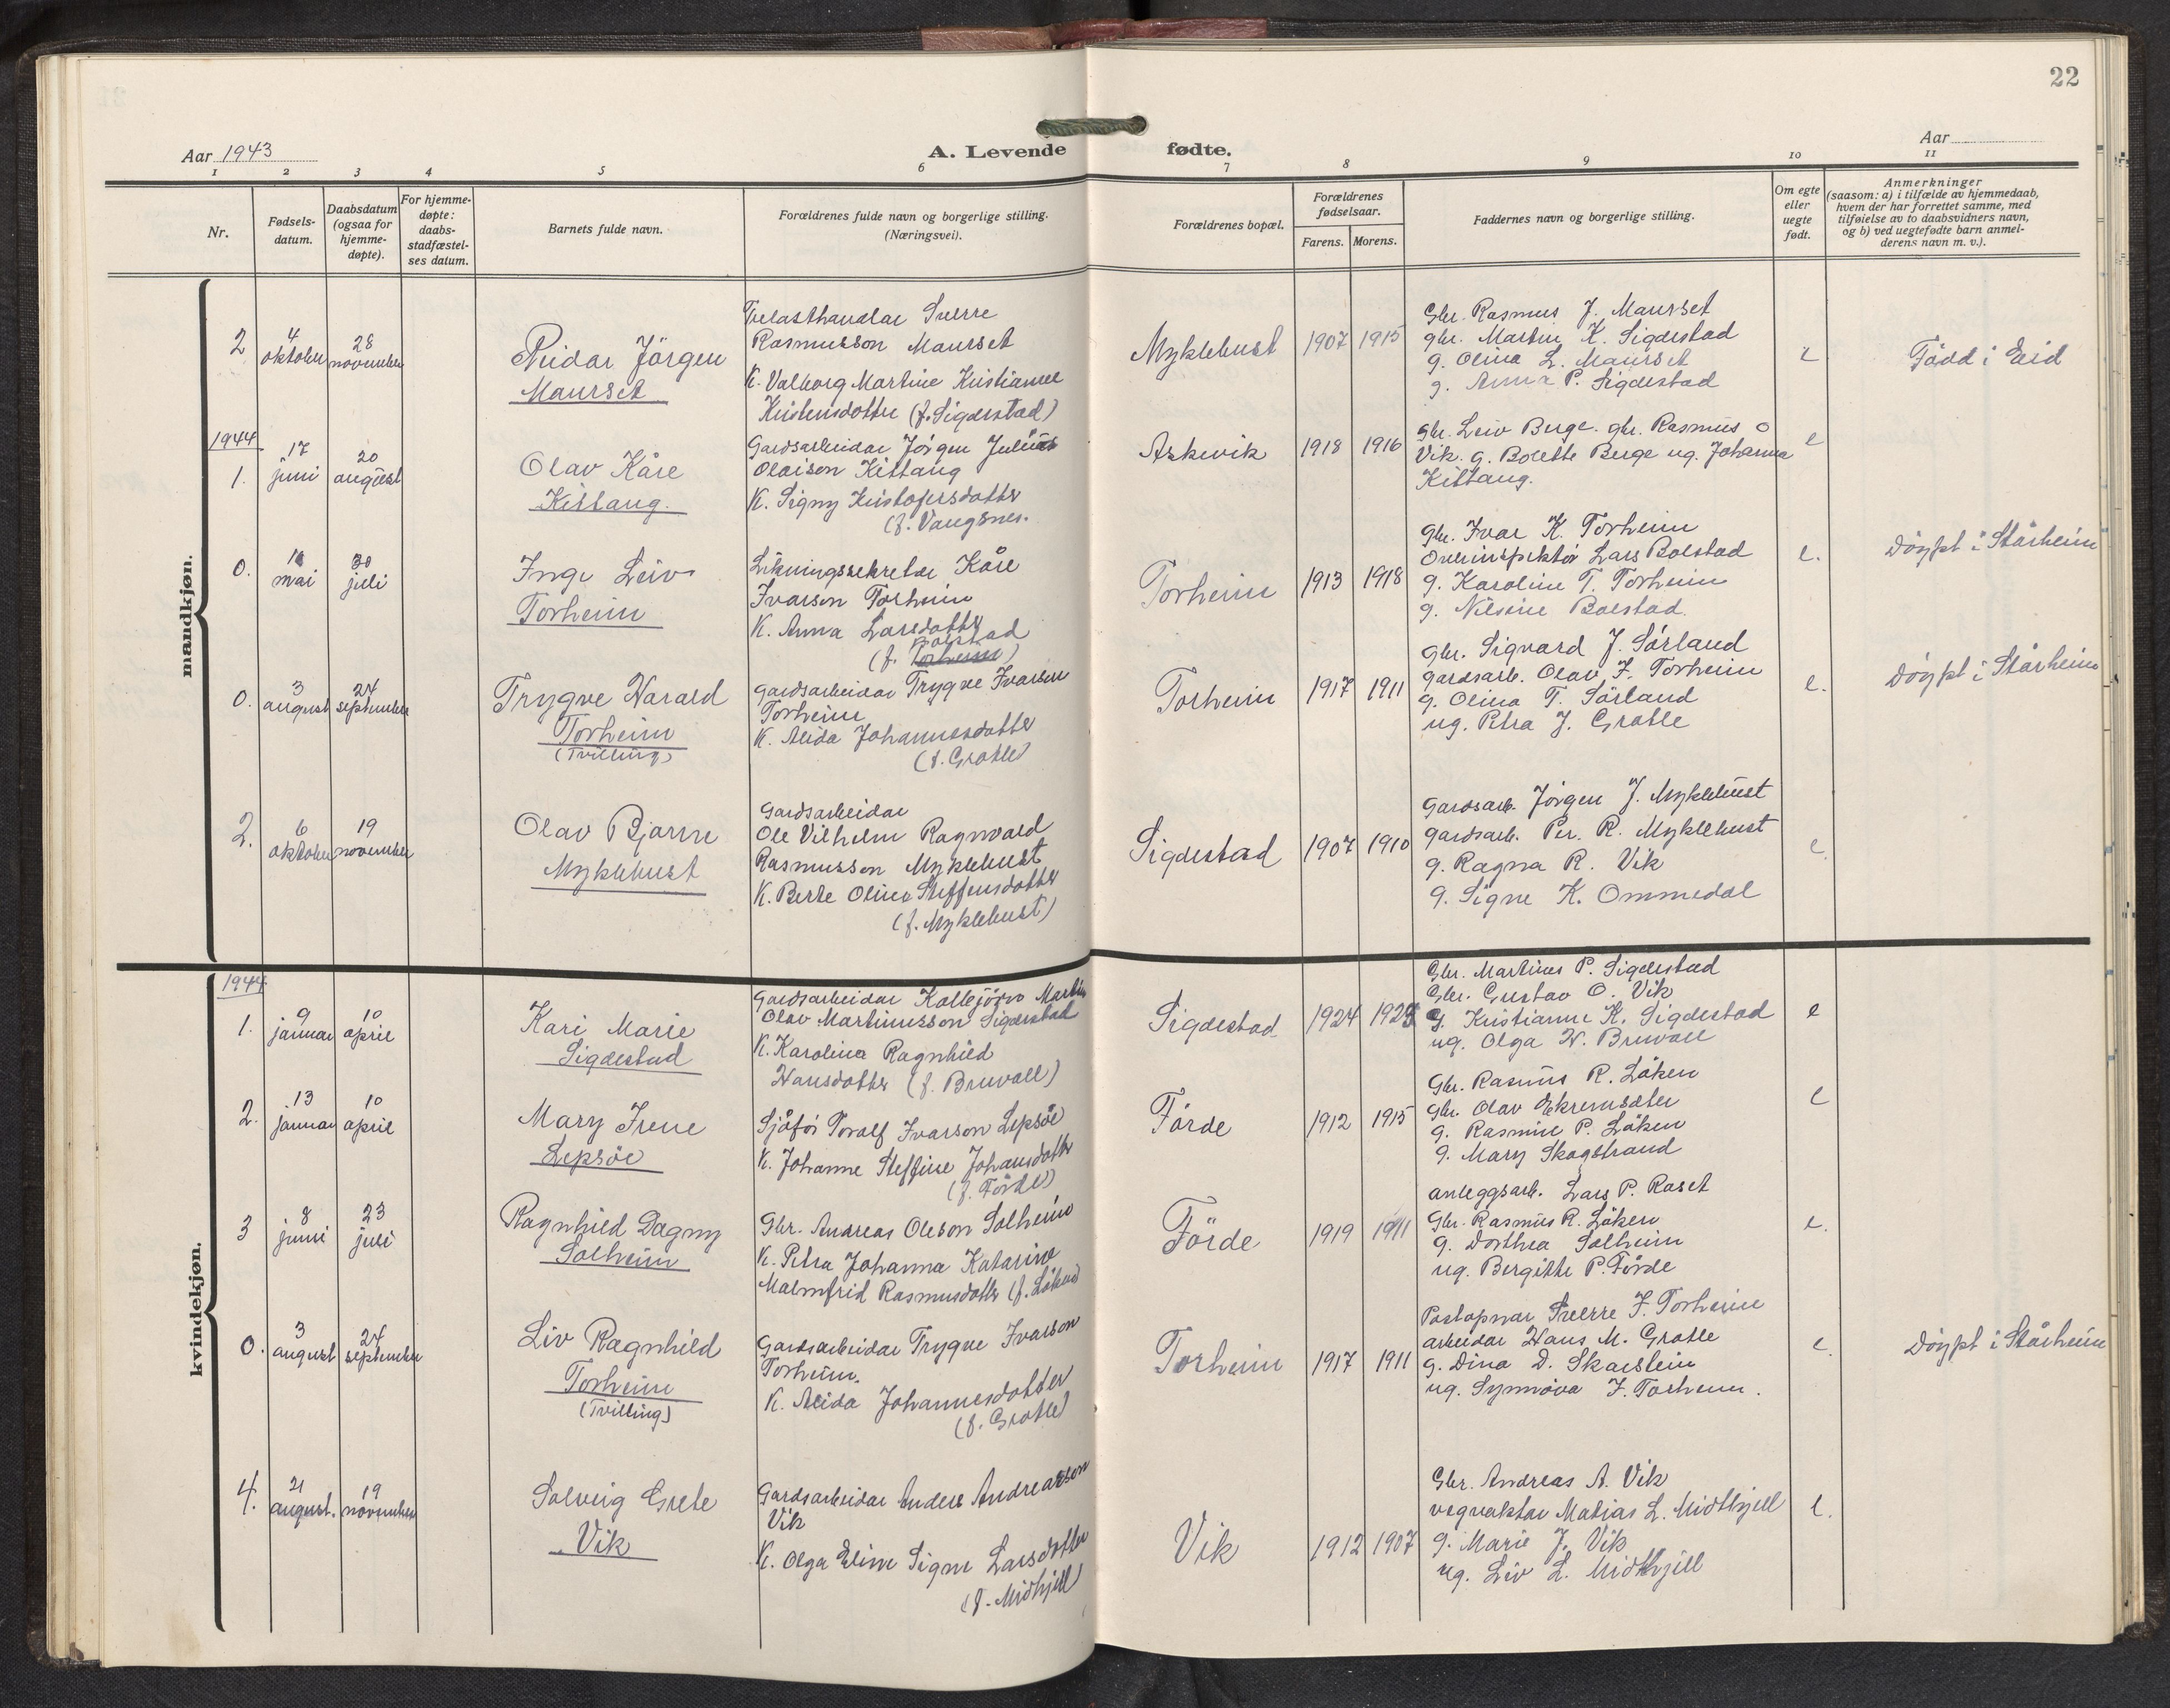 22
Aar 1943
A. Levende fødte.
Aar
1 2 3 4 5 6 7 8 9 10 11
Nr.
Fødsels-
datum.
Daabsdatum
(ogsaa for
hjemme-
døpte).
For hjemme-
døpte:
daabs-
stadfæstel-
ses datum.
Barnets fulde navn.
Forældrenes fulde navn og borgerlige stilling.
(Næringsvei).
Forældrenes bopæl.
Forældrenes
fødselsaar.
Farens. Morens.
Faddernes navn og borgerlige stilling.
Om egte
eller
uegte
født.
Anmerkninger
(saasom: a) i tilfælde av hjemmedaab,
hvem der har forrettet samme, med
tilføielse av to daabsvidners navn,
og b) ved uegtefødte barn anmel-
derens navn m. v.).
mandkjøn.
2
4
oktober
28
november
Reidar Jörgen
Maurset
Trelasthandlar Sverre
Rasmusson Maurset
K. Valborg Martine Kristianne
Kristensdotter (f. Sigdestad)
Myklebust
1907 1915
Gbr. Rasmus J. Maurset
gbr. Martin K. Sigdestad
g. Olina L. Maurset
g. Anna P. Sigdestad
e
Född i Eid
1944
1.
17
juni
20
august
Olav Kåre
Kittang.
Gardsarbeidar Jörgen Julius
Olaison Kittang
K. Signy Kristofersdotter
(f. Vangsnes.
Askevik
1918 1916
Gbr. Leiv Berge. gbr. Rasmus O
Vik. g. Borette Berge ug. Johanna
Kittang.
e
0.
mai
30
juli
Inge Leiv
Torheim
Likningssekretær Kåre
Ivarson Torheim
K. Anna Larsdotter
Bolstad
(f. Torheim)
Torheim
1913 1918
Gbr. Ivar K. Torheim
Overinspektör Lars Bolstad
g. Karoline T. Torheim
g. Nilsine Bolstad.
e.
döypt i Stårheim
0.
3
august
24
september
Trygve Harald
Torheim
(Tvilling)
Gardsarbeidar Trygve Ivarson
Torheim
K. Alida Johannesdotter
(f. Grotle)
Torheim
1917 1911
Gbr. Sigvard J. Sörland
gardsarb. Olav I. Torheim
g. Olina T. Sörland
ug. Petra J. Grotle
e.
döypt i Stårheim
2.
6
oktober
19
november
Olav Bjarne
Myklebust
Gardsarbeidar
Ole Vilhelm Ragnvald
Rasmusson Myklebust
K. Berte Olina Steffensdotter
(f. Myklebust)
Sigdestad
1907 1910
Gardsarb. Jörgen J. Myklebust
gardsarb. Per. R. Myklebust
g. Ragna R. Vik
g. Signe K. Ommedal
e.
kvindekjøn.
1944
1.
9
januar
10
april
Kari Marie
Sigdestad
Gardsarbeidar Kolbjörn Martin
Olav Martinusson Sigdestad
K. Karolina Ragnhild
Hansdotter (f. Bruvoll)
Sigdestad
1924
Gbr. Martinus P. Sigdestad
Gbr. Gustav O. Vik
g. Kristianne K. Sigdestad
ug. Olga H. Bruvoll
e
2.
13
januar
10
april
Mary Irene
Lepsöe
Sjåfør Torolf Ivarson Lepsöe
K. Johanne Steffine Johansdotter
(f. Förde)
Förde
1912 1915
Gbr. Rasmus R. Löken
Gbr. Olav Ekremsæter
g. Rasmine P. Löken
g. Mary Skogstrand
e
3
8
juni
23
juli
Ragnhild Dagny
Solheim
Gbr. Andreas Oleson Solheim
K. Petra Johanna Katarine
Malmfrid Rasmusdotter (f. Löken)
Förde
1919 1911
anleggsarb. Lars P. Raset
Gbr. Rasmus R. Löken
g. Dorthea Solheim
ug. Bergitte P. Förde
e.
0.
3
august
24
september
Liv Ragnhild
Torheim
(Tvilling)
Gardsarbeidar Trygve Ivarson
Torheim.
K. Alida Johannesdotter
(f. Grotle)
Torheim
1917 1911
Postopnar Sverre I. Torheim
arbeidar Hans M. Grotle
g. Dina D. Skarstein
ug. Synnöva I. Torheim.
e.
döypt i Stårheim
4.
21
august.
19
november
Solveig Grete
Vik
Gardsarbeidar Anders Andreasson
Vik
K. Olga Eline Signe Larsdotter
(f. Midthjell)
Vik
1912 1907
Gbr. Andreas A. Vik
vegvaktar Matias L. Midthjell
g. Marie J. Vik
ug. Liv L. Midthjell
e.